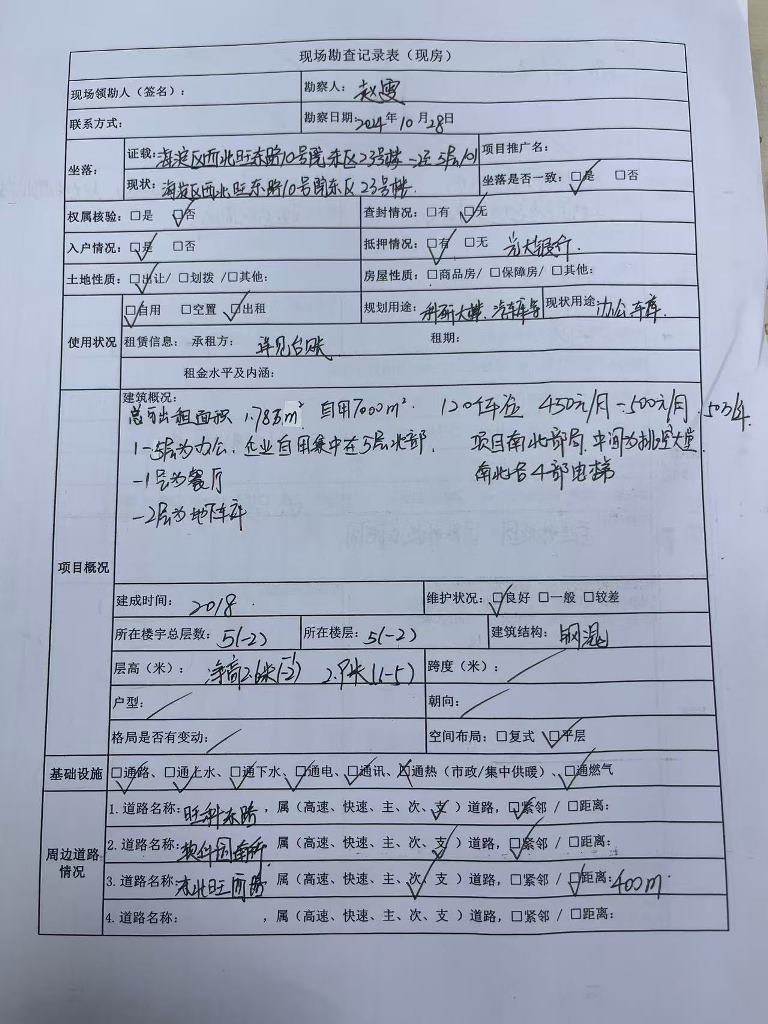 现场勘查记录表（现房）
现场领勘人（签名）： 勘察人：赵雯
联系方式： 勘察日期：2024年10月28日
坐落： 证载：海淀区西北旺东路10号院东区23号楼-2至5层101 项目推广名：
现状：海淀区西北旺东路10号院东区23号楼. 坐落是否一致：☑是 □否
权属核验：□是 ☑否 查封情况：□有 ☑无
入户情况：☑是 □否 抵押情况：☑有 □无 光大银行.
土地性质：☑出让/ □划拨 /□其他： 房屋性质：□商品房/ □保障房/ □其他：
使用状况 ☑自用 □空置 ☑出租 规划用途：科研大楼、汽车库等 现状用途：办公车库.
租赁信息：承租方：详见台账 租期：
租金水平及内涵：
项目概况 建筑概况：
总可出租面积 1.783m² 自用7000m². 120个车位 450元/月-500元/月.
1-5层为办公.企业自用集中在5层北部. 项目南北部局.中间为挑空大堂.
-1层为餐厅 南北各4部电梯
-2层为地下车库
建成时间：2018. 维护状况：☑良好 □一般 □较差
所在楼宇总层数：5(-2) 所在楼层：5(-2) 建筑结构：钢混
层高（米）：净高2.6米(-2) 2.9米(1-5) 跨度（米）：
户型： 朝向：
格局是否有变动： 空间布局：□复式 ☑平层
基础设施 ☑通路、☑通上水、☑通下水、☑通电、☑通讯、☒通热（市政/集中供暖）、☑通燃气
周边道路情况 1.道路名称：旺科东路，属（高速、快速、主、次、支）道路，☑紧邻 / □距离：
2.道路名称：软件园南街，属（高速、快速、主、次、支）道路，☑紧邻 / □距离：
3.道路名称：西北旺西路，属（高速、快速、主、次、支 ）道路，□紧邻 / ☑距离：400m.
4.道路名称： ，属（高速、快速、主、次、支 ）道路，□紧邻 / □距离：